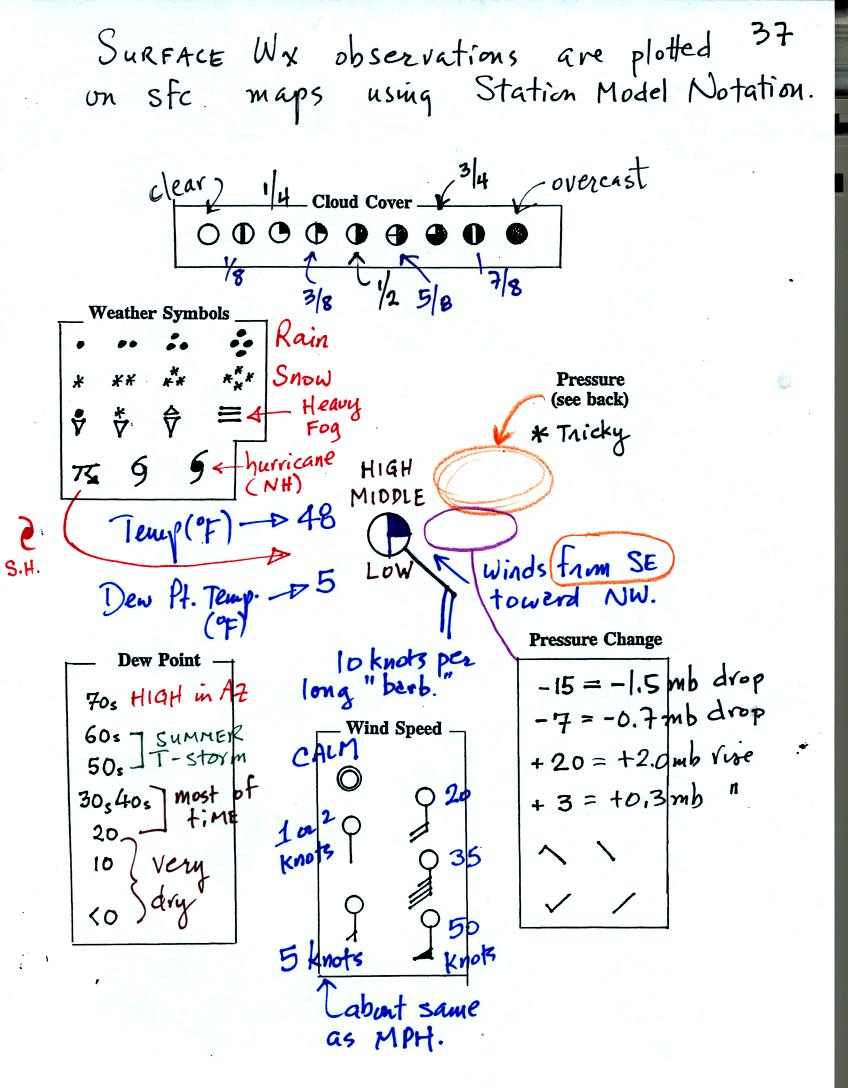 37
SURFACE Wx observations are plotted
on sfc. maps using Station Model Notation.
clear 1/4 3/4 overcast
Cloud Cover
1/8 3/8 1/2 5/8 7/8
Weather Symbols
Rain
Snow
Heavy
Fog
hurricane
(NH)
S.H.
Pressure
(see back)
* Tricky
HIGH
MIDDLE
LOW
Temp(°F) 48
Dew Pt. Temp. 5
(°F)
winds from SE
toward NW.
10 knots per
long "barb."
Dew Point
70s HIGH in AZ
60s SUMMER
50s T-storm
30s, 40s most of
time
20
10 very
dry
<0
Wind Speed
CALM
20
1 or 2
knots
35
50
5 knots knots
about same
as MPH.
Pressure Change
-15 = -1.5 mb drop
-7 = -0.7 mb drop
+20 = +2.0 mb rise
+3 = +0.3 mb "